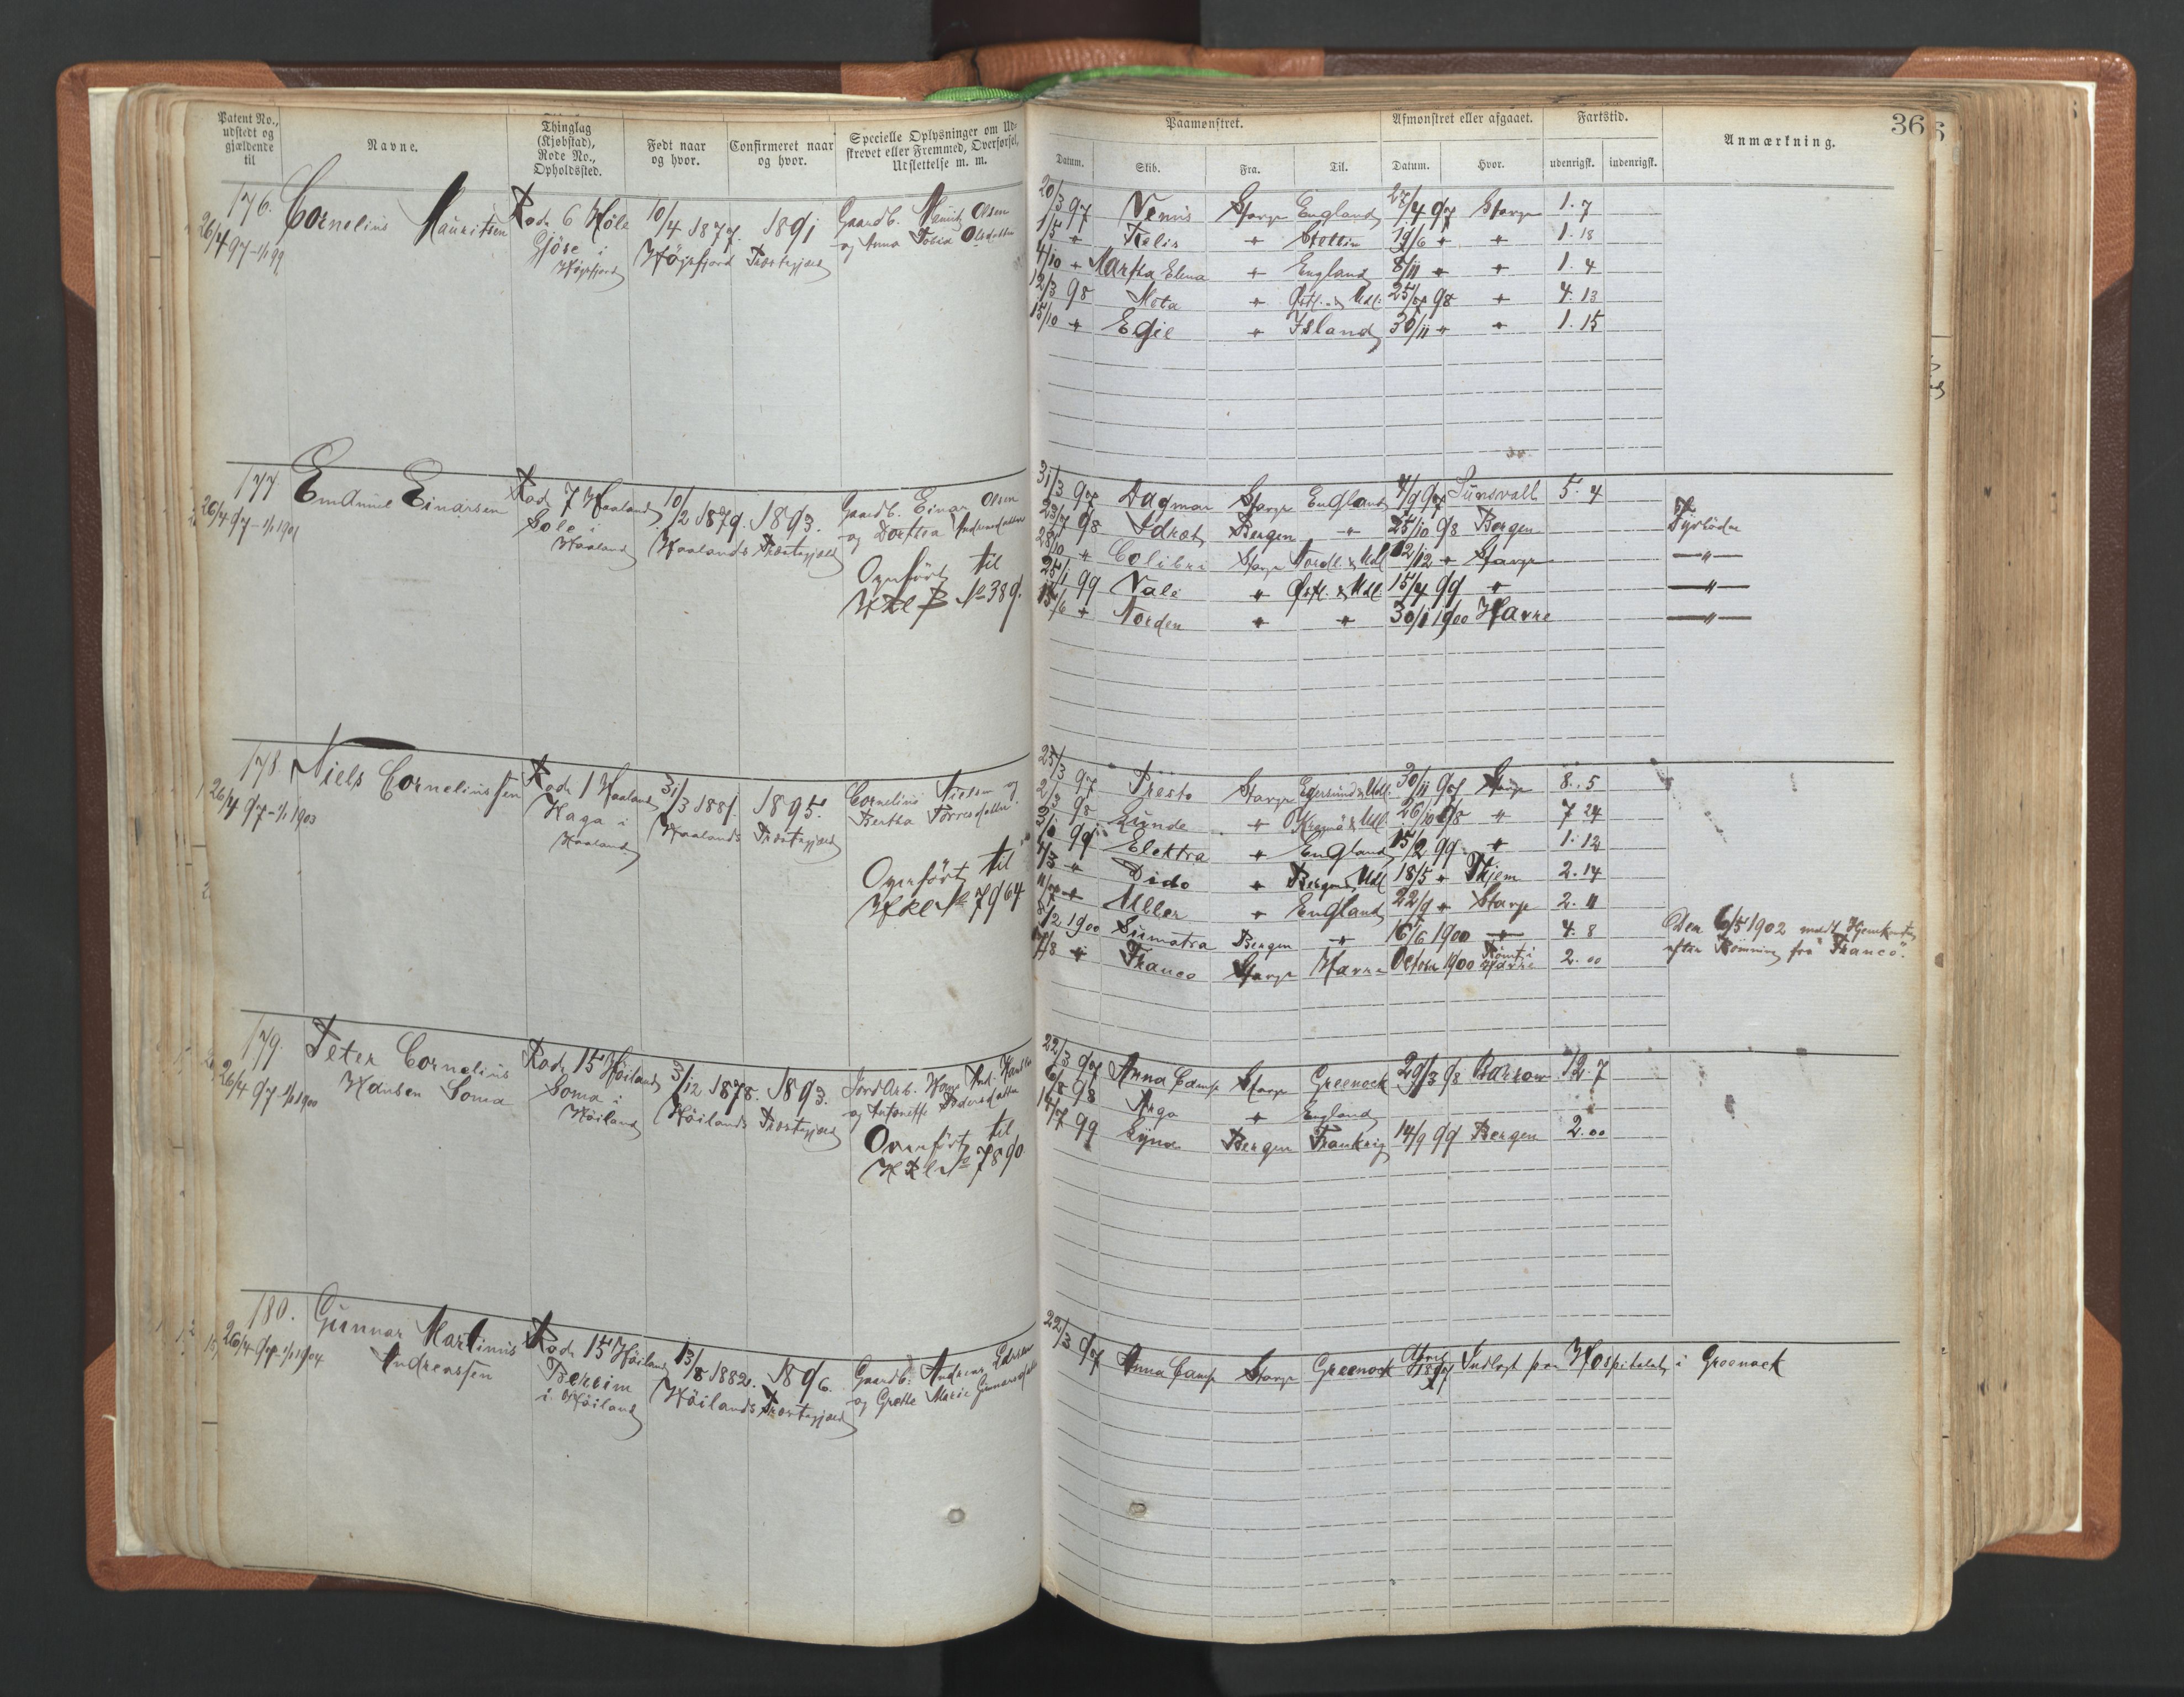 Patent No., udstedt og gjældende til
Navne.
Thinglag (Kjøbstad), Rode No., Opholdssted.
Født naar og hvor.
Confirmeret naar og hvor.
Specielle Oplysninger om Udskrevet eller Fremmed, Overførsel, Udslettelse m. m.
Paamønstret.
Afmønstret eller afgaaet.
Fartstid.
Anmærkning.
36
Datum.
Skib.
Fra.
Til.
Datum.
Hvor.
udenrigsk.
indenrigsk.
176.
26/4 97 - 1/1 99
Cornelius Mauritsen
Rode 6 Høle
Gjöse i
Högsfjord
10/4 1877.
Högsfjord
1891
Præstegjæld
Gaardb. Olsen
og Anna Olsdatter
20/3 97 Venus Stavgr England 28/4 97 Stavgr 1. 7
1/5 " " Stettin 19/6 " " 1. 18
4/10 " Martha Elena " England 8/11 " " 1. 4
12/3 98 Mota " Østl. & Udl. 25/7 98 " 4. 13
15/10 " Egil " Island 30/11 " " 1. 15
177
26/4 97 - 1/1 1901
Emanuel Einarsen
Rode 7 Haaland
Sole i
Haaland
10/2 1879.
Haalands
1893.
Præstegjæld
Gaardb. Einar Olsen
og Dorthea Andersdatter
Overført til
Hkl B № 389.
31/3 97 Dagmar Stavgr England 4/9 97 Sunsvall 5. 4
23/7 98 Idræt Bergen " 25/10 98 Bergen Fyrböder
28/10 " Colibri Stavgr Nordl. & Udl 12/12 " Stavgr — " —
25/1 99 Vale " Østl. & Udl. 15/4 99 " — " —
15/6 " Norden " " 30/1 1900 Havre — " —
178.
26/4 97 - 1/1 1903
Niels Corneliussen
Rode 1 Haaland
Haga i
Haaland
31/3 1881.
Haalands
1895.
Præstegjæld
Cornelius Nielsen og
Bertha Torresdatter
Overført til
Hkl № 7964
25/3 97 Presto Stavgr Egersund & Udl. 30/11 97 Stavgr 8. 5
2/3 98 Lunde " Kragerö & Udl 26/10 98 " 7 24
3/1 99 Elektra " England 15/2 99 " 1. 12
4/3 " Dido " Bergen & Udl 18/5 " Thjem 2. 14
11/7 " Uller " England 22/9 " Stavgr 2. 11
8/2 1900 Sumatra Bergen " 16/6 1900 " 4. 8
17/8 " Franco Stavgr Havre October 1900 Rømt i Havre 2. 00
Den 6/5 1902 meldt Hjemkomst
efter Rømning fra "Franco".
179.
26/4 97 - 1/1 1900
Peter Cornelius
Hansen Soma
Rode 15 Höiland
Soma i
Höiland
3/12 1878.
Höilands
1893.
Præstegjæld
Jordarb. Hans And. Hansen
og Antonette Pedersdatter
Overført til
Hkl № 7890
22/3 97 Anna Camp Stavgr Greenock 29/3 98 Barrow 12. 7
6/8 98 Arga " England
14/7 99 Bergen Frankrig 14/9 99 Bergen 2. 00
180.
26/4 97 - 1/1 1904
Gunnar Martinus
Andreassen
Rode 15 Höiland
i Höiland
13/8 1882.
Höilands
1896.
Præstegjæld
Gaardb. Andreas Larsen
og Grethe Marie Gunnarsdatter
22/3 97 Anna Camp Stavgr Greenock April 1897 Indlagt paa Hospitalet i Greenock